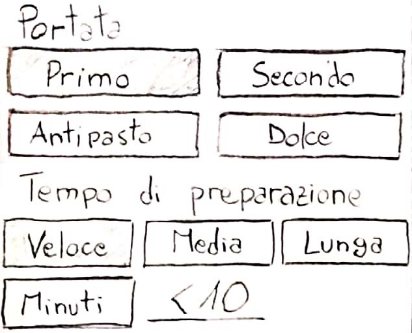 Portata
Primo Secondo
Antipasto Dolce
Tempo di preparazione
Veloce Media Lunga
Minuti <10